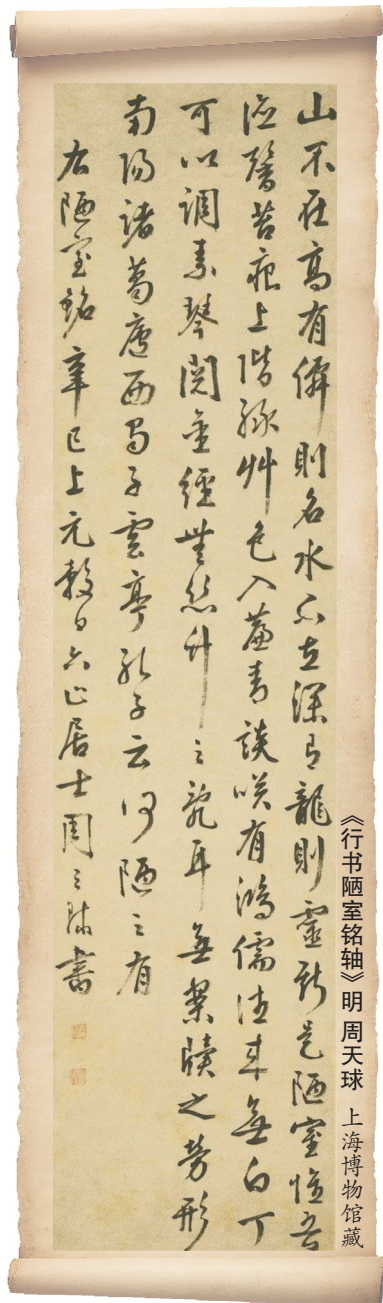 山不在高有僊則名水不在深有龍則靈斯是陋室惟吾
德馨苔痕上階綠艸色入簾青談咲有鴻儒往來無白丁
可以調素琴閱金經無絲竹之亂耳無案牘之勞形
南陽諸葛廬西蜀子雲亭孔子云何陋之有
右陋室銘辛巳上元穀日六止居士周天球書
《行书陋室铭轴》明 周天球 上海博物馆藏